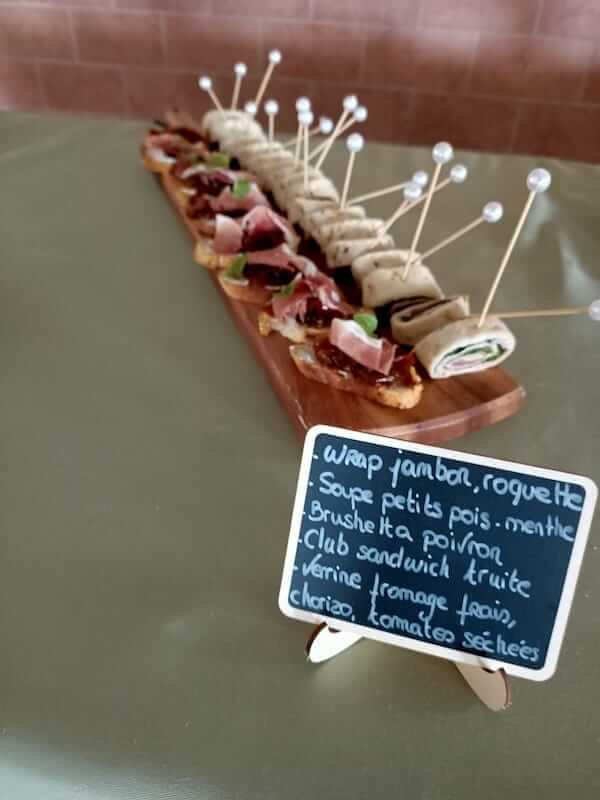 - Wrap jambon, roquette
- Soupe petits pois-menthe
- Brushetta poivron
- Club sandwich truite
- Verrine fromage frais,
chorizo, tomates séchées